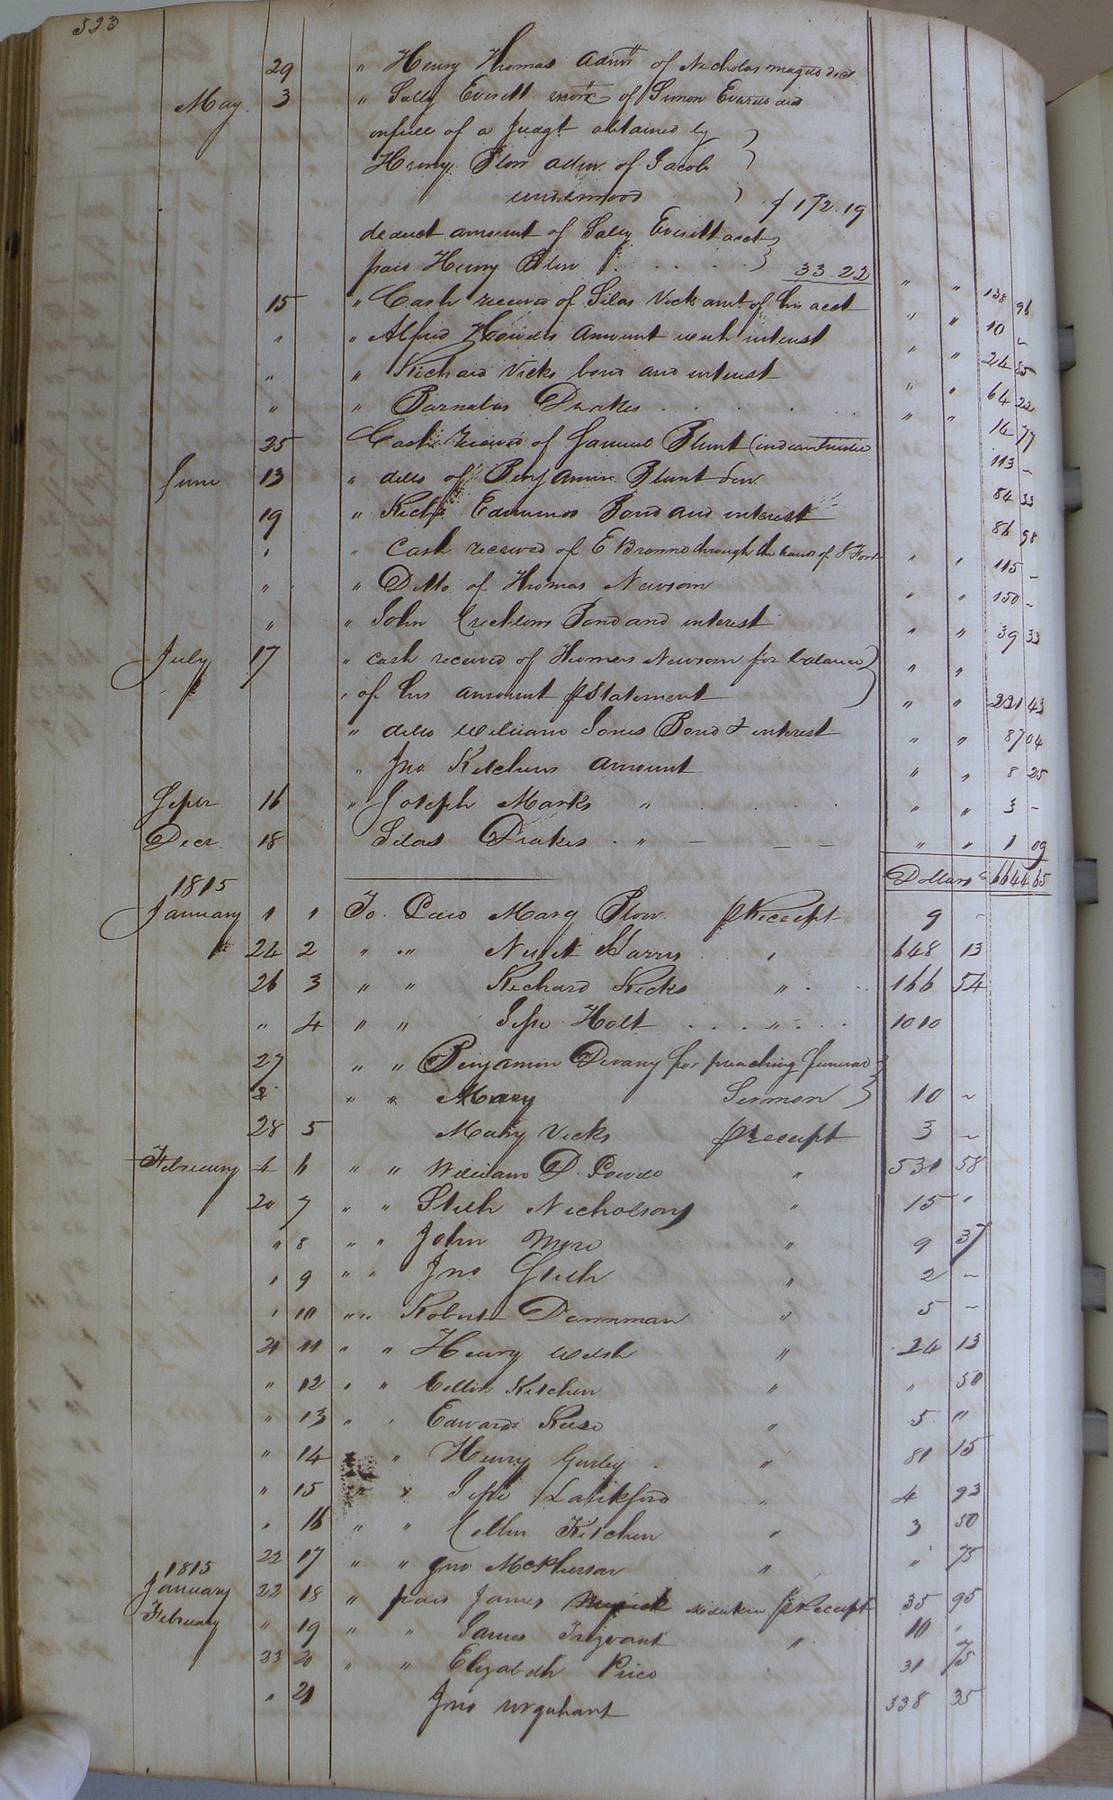 523
29 " Henry Thomas admr of Nicholas dec
May 3 " Sally Everitt of Simon Everitt
infull of a Judgt obtained by
Henry Blow admr of Jacob
underwood $ 172.19
deduct amount of Sally Everitt acct
paid Henry Blow . . . . . 33.22 " " 138 96
15 " Cash received of Silas Vick amt of his acct " " 10 -
" " Alfred Howells amount with interest " " 24 85
" " Richard Vicks bond and interest " " 64 22
" " Barnabas Drakes . . . . " " 14 77
25 Cash received of Samuel Blunt (indian trustee 113 -
June 13 " ditto of Benjamin Blunt Sen 84 33
19 " Richd Edmunds Bond and interest 86 98
" " Cash received of E Browne through the hands of S Fort " " 115 -
" " Ditto of Thomas Newsom " " 150 -
" " John Bond and interest " " 39 33
July 17 " cash received of Thomas Newsom for balance " "
" of his amount p Statement " " 221 43
" ditto William Jones Bond & interest " " 87 04
" Jno Kitchens amount " " 8 25
Septr 16 " Joseph Marks " . . . " " 3 -
Decr 18 Silas Drakes . " - - - " " 1 09
Dollars 6644 65
1815
January 1 1 To Paid Mary Blow p Receipt 9 -
" 24 2 " " Newit Harris " 648 13
26 3 " " Richard Ricks " 166 54
" 4 " " Jesse Holt . . . " . . . 10 10
27 " " Benjamin Devany for preaching funeral
" " Mary Sermon 10 -
28 5 Mary Vicks p receipt 3 -
February 4 6 " " William D. Powell " 531 58
20 7 " " Stith Nicholson " 15 "
" 8 " " John More " 9 37
" 9 " " Jno Stith " 2 -
" 10 " " Robert Dornman " 5 -
21 11 " " Henry Welsh " 24 13
" 12 " " Collin Kitchen " " 50
" 13 " " Edward Reese " 5 "
" 14 " " Henry Gurley " 81 15
" 15 " " Jesse Lankford " 4 93
" 16 " " Collin Kitchen " 3 50
22 17 " " Jno McPherson " " 75
1815
January 22 18 " paid James p Receipt 35 95
February " 19 " " James Trezvant " 10 "
23 20 " " Elizabeth Price 31 75
" 21 Jno Urquhart 338 35